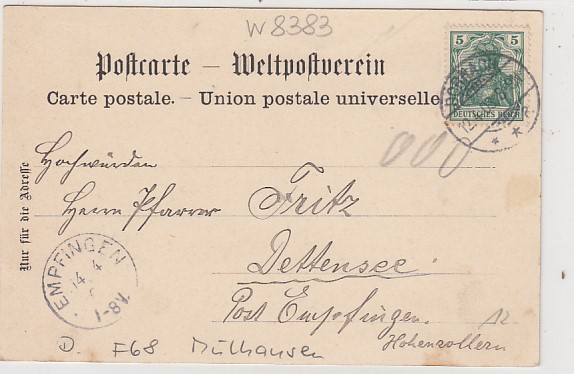 W 8383
Postcarte – Weltpostverein
Carte postale. – Union postale universelle
5 5
DEUTSCHES REICH
000
Nur für die Adresse
Hochwürden
Herrn Pfarrer Fritz
Dettensee
Post Empfingen.
Hohenzollern
12
EMPFINGEN
14 4
1-8V.
D. F68 Mülhausen